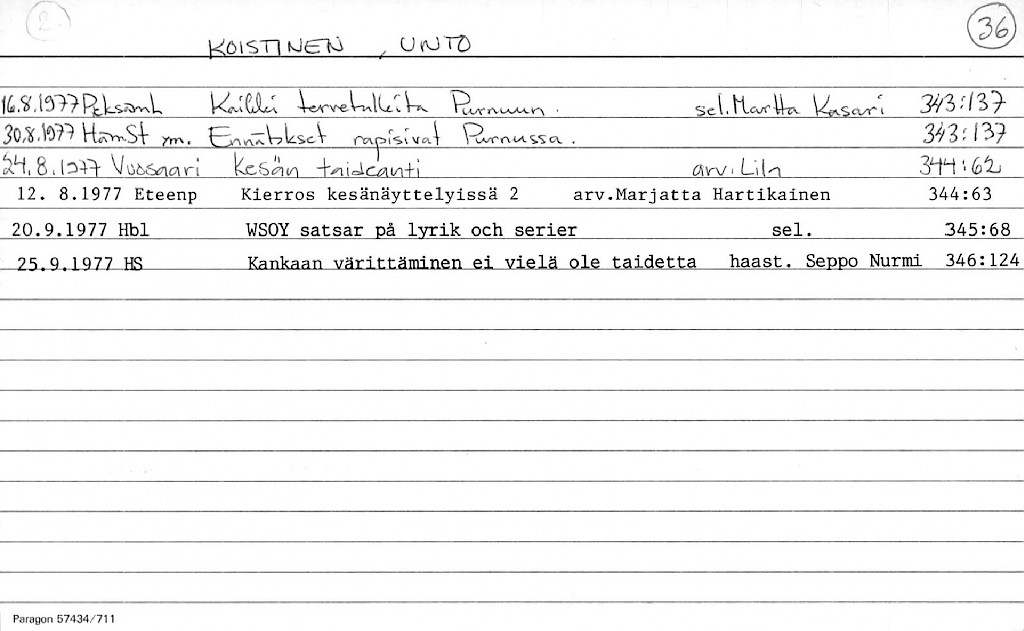 2.
36
KOISTINEN, UNTO
16.8.1977 Pieksämh Kaikki tervetulleita Purnuun. sel. Martta Kasari 343:137
30.8.1977 HämSt ym. Ennätykset rapisivat Purnussa. 343:137
24.8.1977 Vuosaari Kesän taidcanti arv. Liln 344:62
12. 8.1977 Eteenp Kierros kesänäyttelyissä 2 arv.Marjatta Hartikainen 344:63
20.9.1977 Hbl WSOY satsar på lyrik och serier sel. 345:68
25.9.1977 HS Kankaan värittäminen ei vielä ole taidetta haast. Seppo Nurmi 346:124
Paragon 57434/711